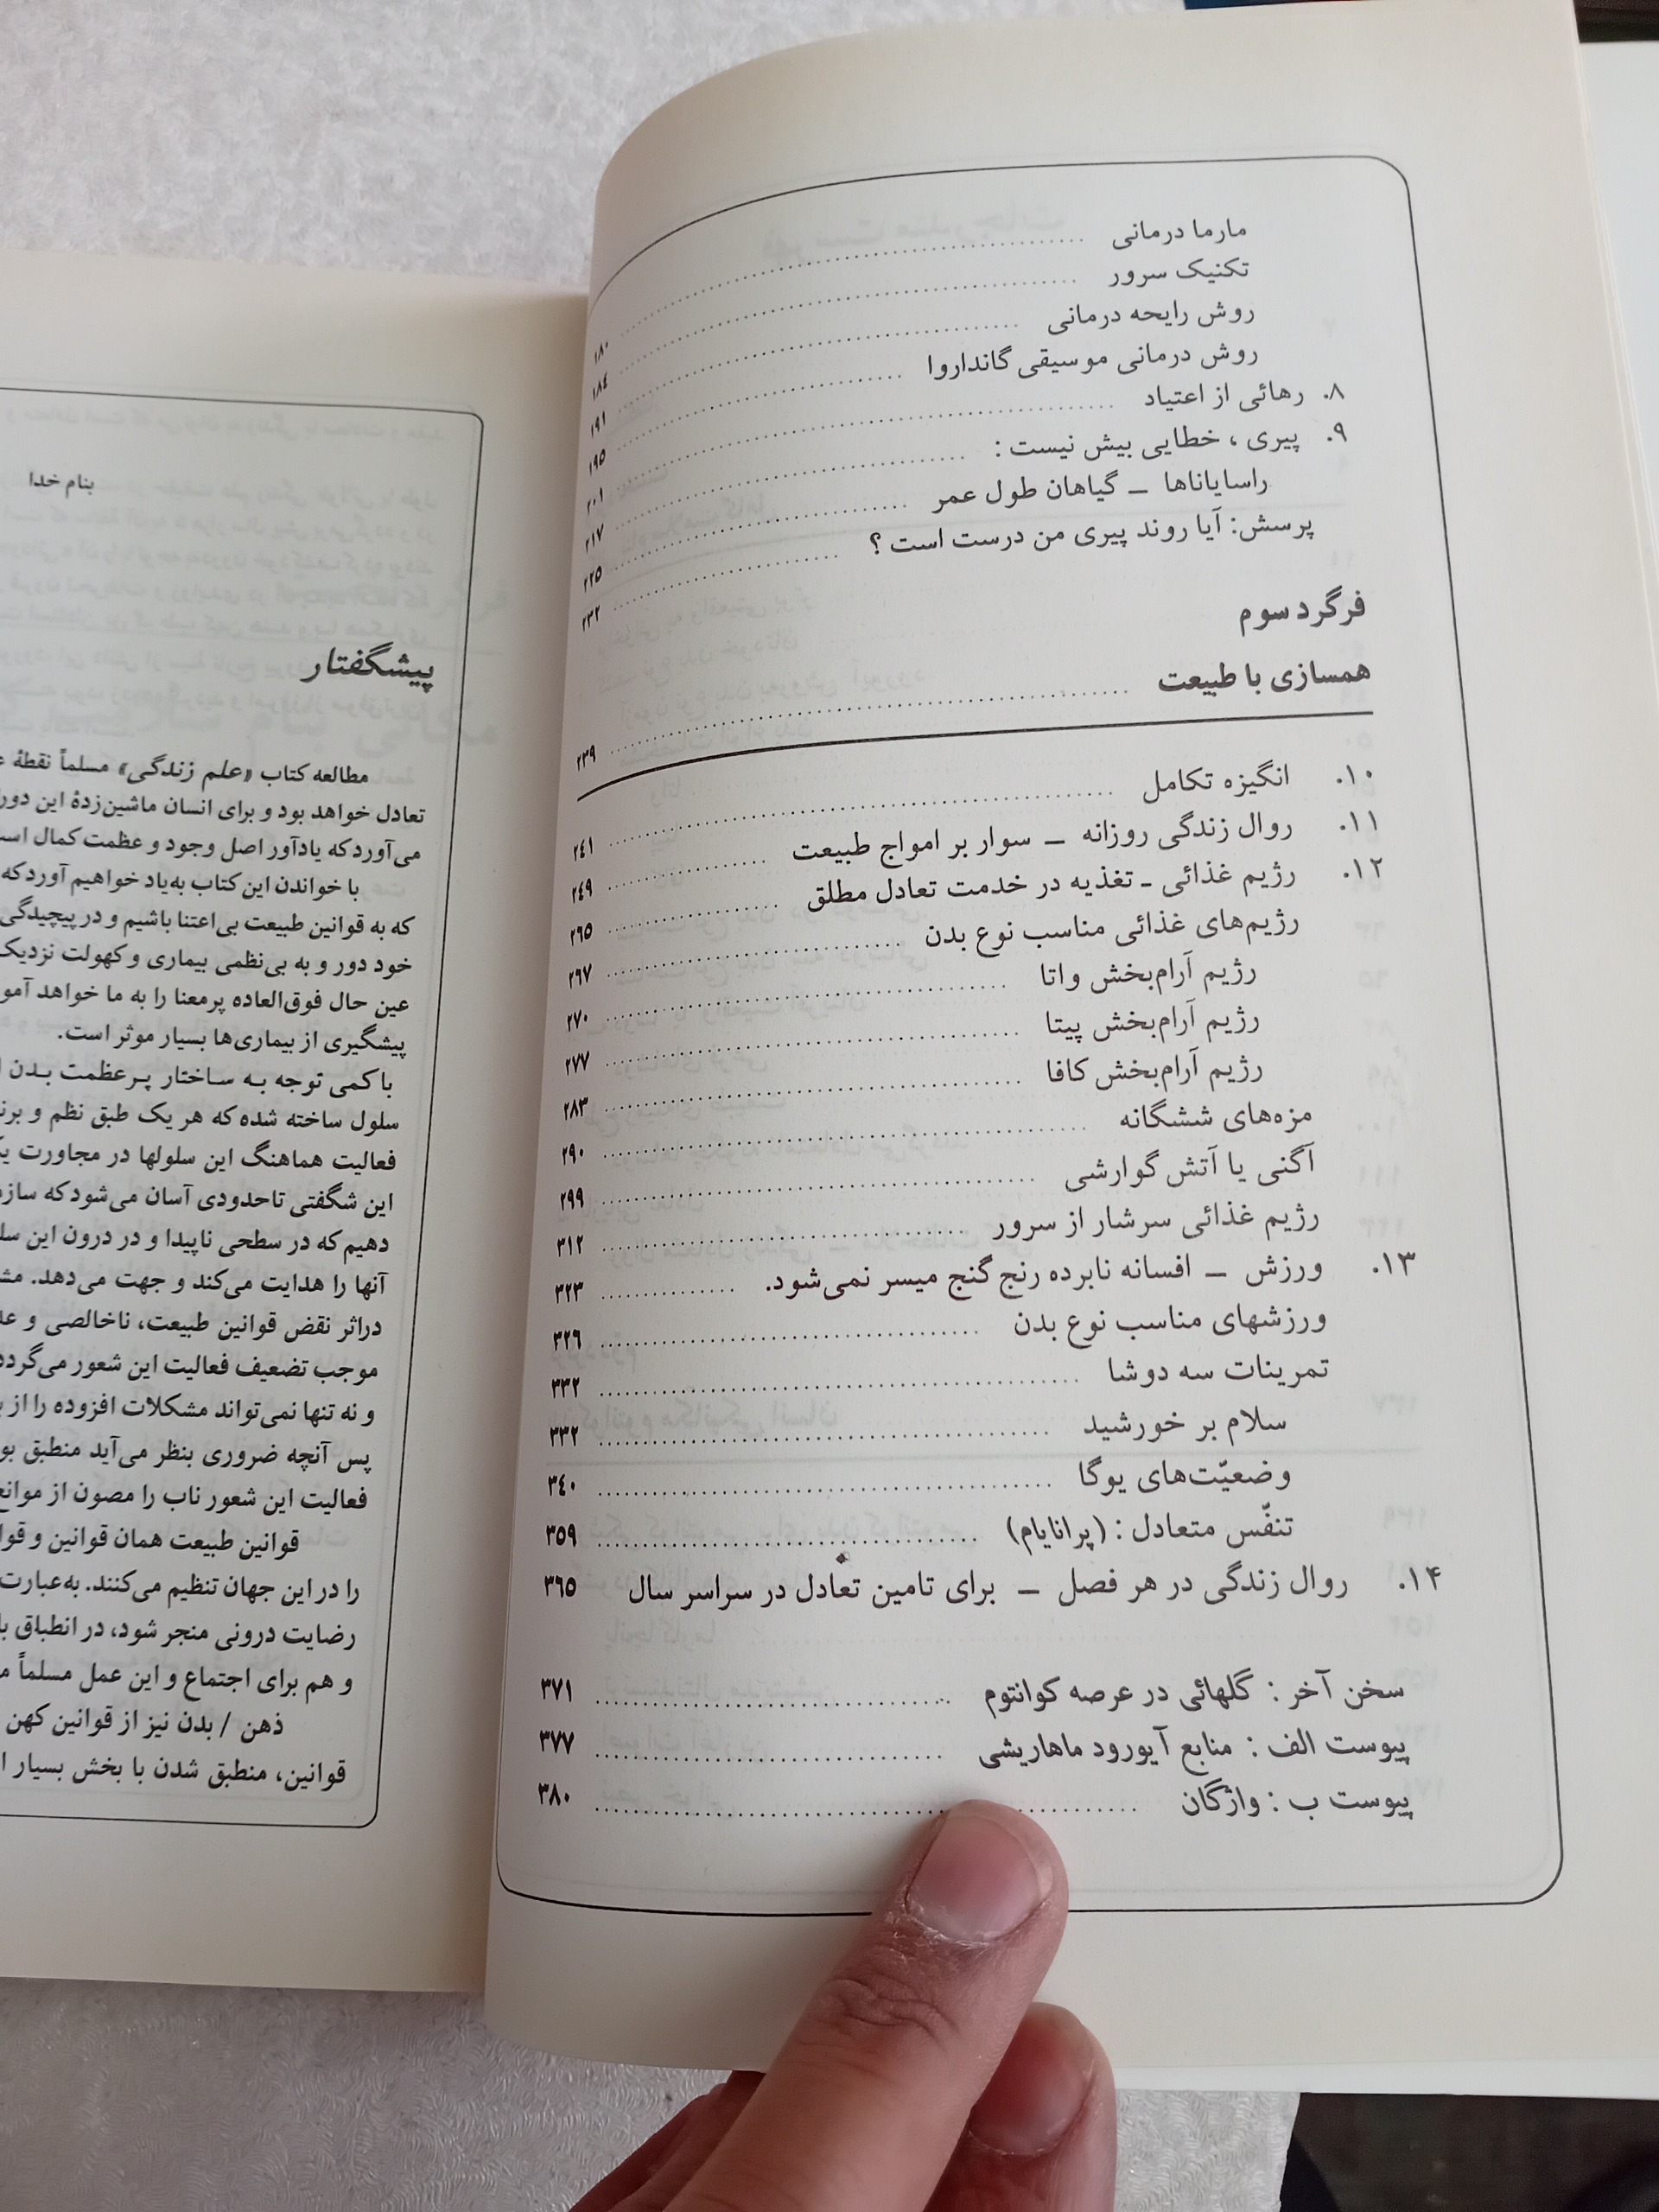 مارما درمانی ........ ۱۸۰
تکنیک سرور ........ ۱۸٤
روش رایحه درمانی ........ ۱۹۱
روش درمانی موسیقی گانداروا ........ ۱۹۵
۸. رهائی از اعتیاد ........ ۲۰۱
۹. پیری ، خطایی بیش نیست : ........ ۲۱۷
راسایاناها – گیاهان طول عمر ........ ۲۲۵
پرسش: آیا روند پیری من درست است ؟ ........ ۲۳۲
فرگرد سوم
همسازی با طبیعت ........ ۲۳۹
۱۰. انگیزه تکامل ........ ۲٤۱
۱۱. روال زندگی روزانه – سوار بر امواج طبیعت ........ ۲٤۹
۱۲. رژیم غذائی - تغذیه در خدمت تعادل مطلق ........ ۲۶۵
رژیم‌های غذائی مناسب نوع بدن ........ ۲۶۷
رژیم آرام‌بخش واتا ........ ۲۷۰
رژیم آرام‌بخش پیتا ........ ۲۷۷
رژیم آرام‌بخش کافا ........ ۲۸۳
مزه‌های ششگانه ........ ۲۹۰
آگنی یا آتش گوارشی ........ ۲۹۹
رژیم غذائی سرشار از سرور ........ ۳۱۲
۱۳. ورزش – افسانه نابرده رنج گنج میسر نمی‌شود. ........ ۳۲۳
ورزشهای مناسب نوع بدن ........ ۳۲۶
تمرینات سه دوشا ........ ۳۳۲
سلام بر خورشید ........ ۳۳۲
وضعیّت‌های یوگا ........ ۳٤۰
تنفّس متعادل : (پرانایام) ........ ۳۵۹
۱۴. روال زندگی در هر فصل – برای تامین تعادل در سراسر سال ۳۶۵
سخن آخر : گلهائی در عرصه کوانتوم ........ ۳۷۱
پیوست الف : منابع آیورود ماهاریشی ........ ۳۷۷
پیوست ب : واژگان ........ ۳۸۰
بنام خدا
پیشگفتار
مطالعه کتاب «علم زندگی» مسلماً نقطهٔ
تعادل خواهد بود و برای انسان ماشین‌زدهٔ این
می‌آورد که یادآور اصل وجود و عظمت کمال
با خواندن این کتاب به‌یاد خواهیم آورد که
که به قوانین طبیعت بی‌اعتنا باشیم و در پیچیدگی
خود دور و به بی‌نظمی بیماری و کهولت نزدیک
عین حال فوق‌العاده پرمعنا را به ما خواهد
پیشگیری از بیماری‌ها بسیار موثر است.
با کمی توجه به ساختار پرعظمت بدن
سلول ساخته شده که هر یک طبق نظم و
فعالیت هماهنگ این سلولها در مجاورت
این شگفتی تاحدودی آسان می‌شود که
دهیم که در سطحی ناپیدا و در درون این
آنها را هدایت می‌کند و جهت می‌دهد.
دراثر نقض قوانین طبیعت، ناخالصی و
موجب تضعیف فعالیت این شعور می‌گردد
و نه تنها نمی‌تواند مشکلات افزوده را از
پس آنچه ضروری بنظر می‌آید منطبق
فعالیت این شعور ناب را مصون از
قوانین طبیعت همان قوانین و
را در این جهان تنظیم می‌کنند. به‌عبارت
رضایت درونی منجر شود، در انطباق
و هم برای اجتماع و این عمل مسلماً
ذهن / بدن نیز از قوانین کهن
قوانین، منطبق شدن با بخش بسیار